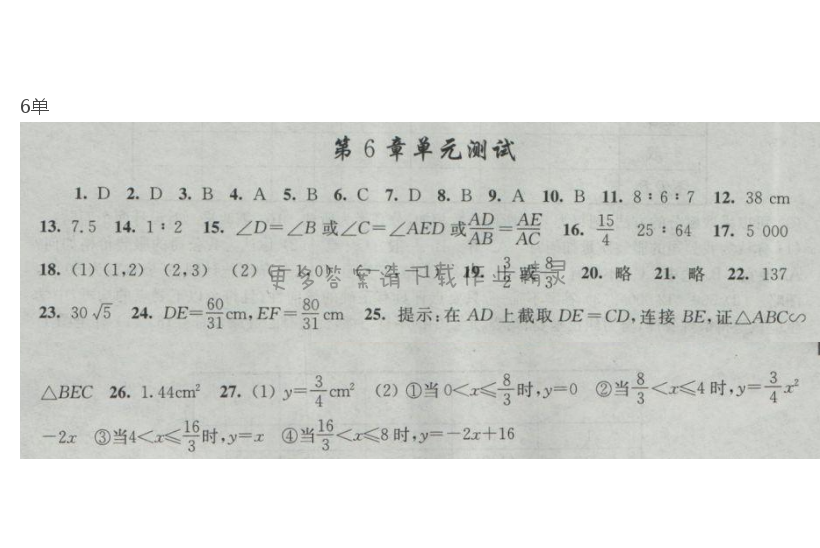 6单
第 6 章单元测试
1. D 2. D 3. B 4. A 5. B 6. C 7. D 8. B 9. A 10. B 11. 8∶6∶7 12. 38 cm
13. 7.5 14. 1∶2 15. ∠D=∠B 或∠C=∠AED 或AD/AB=AE/AC 16. 15/4 25∶64 17. 5 000
18. (1) (1,2) (2,3) (2) 19. 3/2 或 8/3 20. 略 21. 略 22. 137
更多答案请下载作业精灵
23. 30√5 24. DE=60/31cm,EF=80/31cm 25. 提示:在 AD 上截取 DE=CD,连接 BE,证△ABC∽
△BEC 26. 1.44cm² 27. (1) y=3/4cm² (2) ①当 0<x≤8/3时,y=0 ②当8/3<x≤4 时,y=3/4x²
-2x ③当4<x≤16/3时,y=x ④当16/3<x≤8 时,y=-2x+16